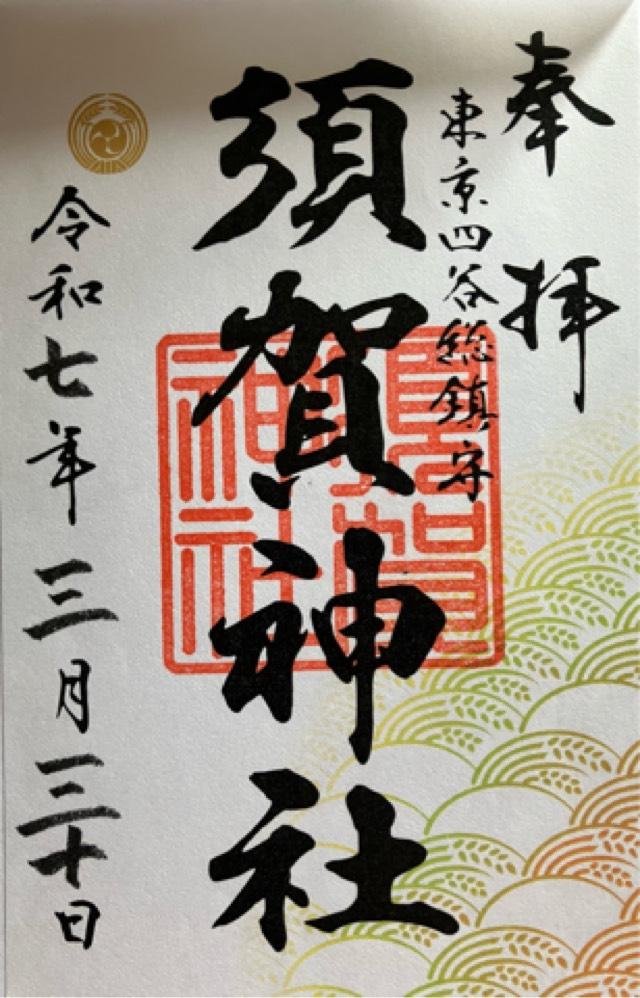 奉拝
東京四谷総鎮守
須賀神社
須賀神社
令和七年三月三十日